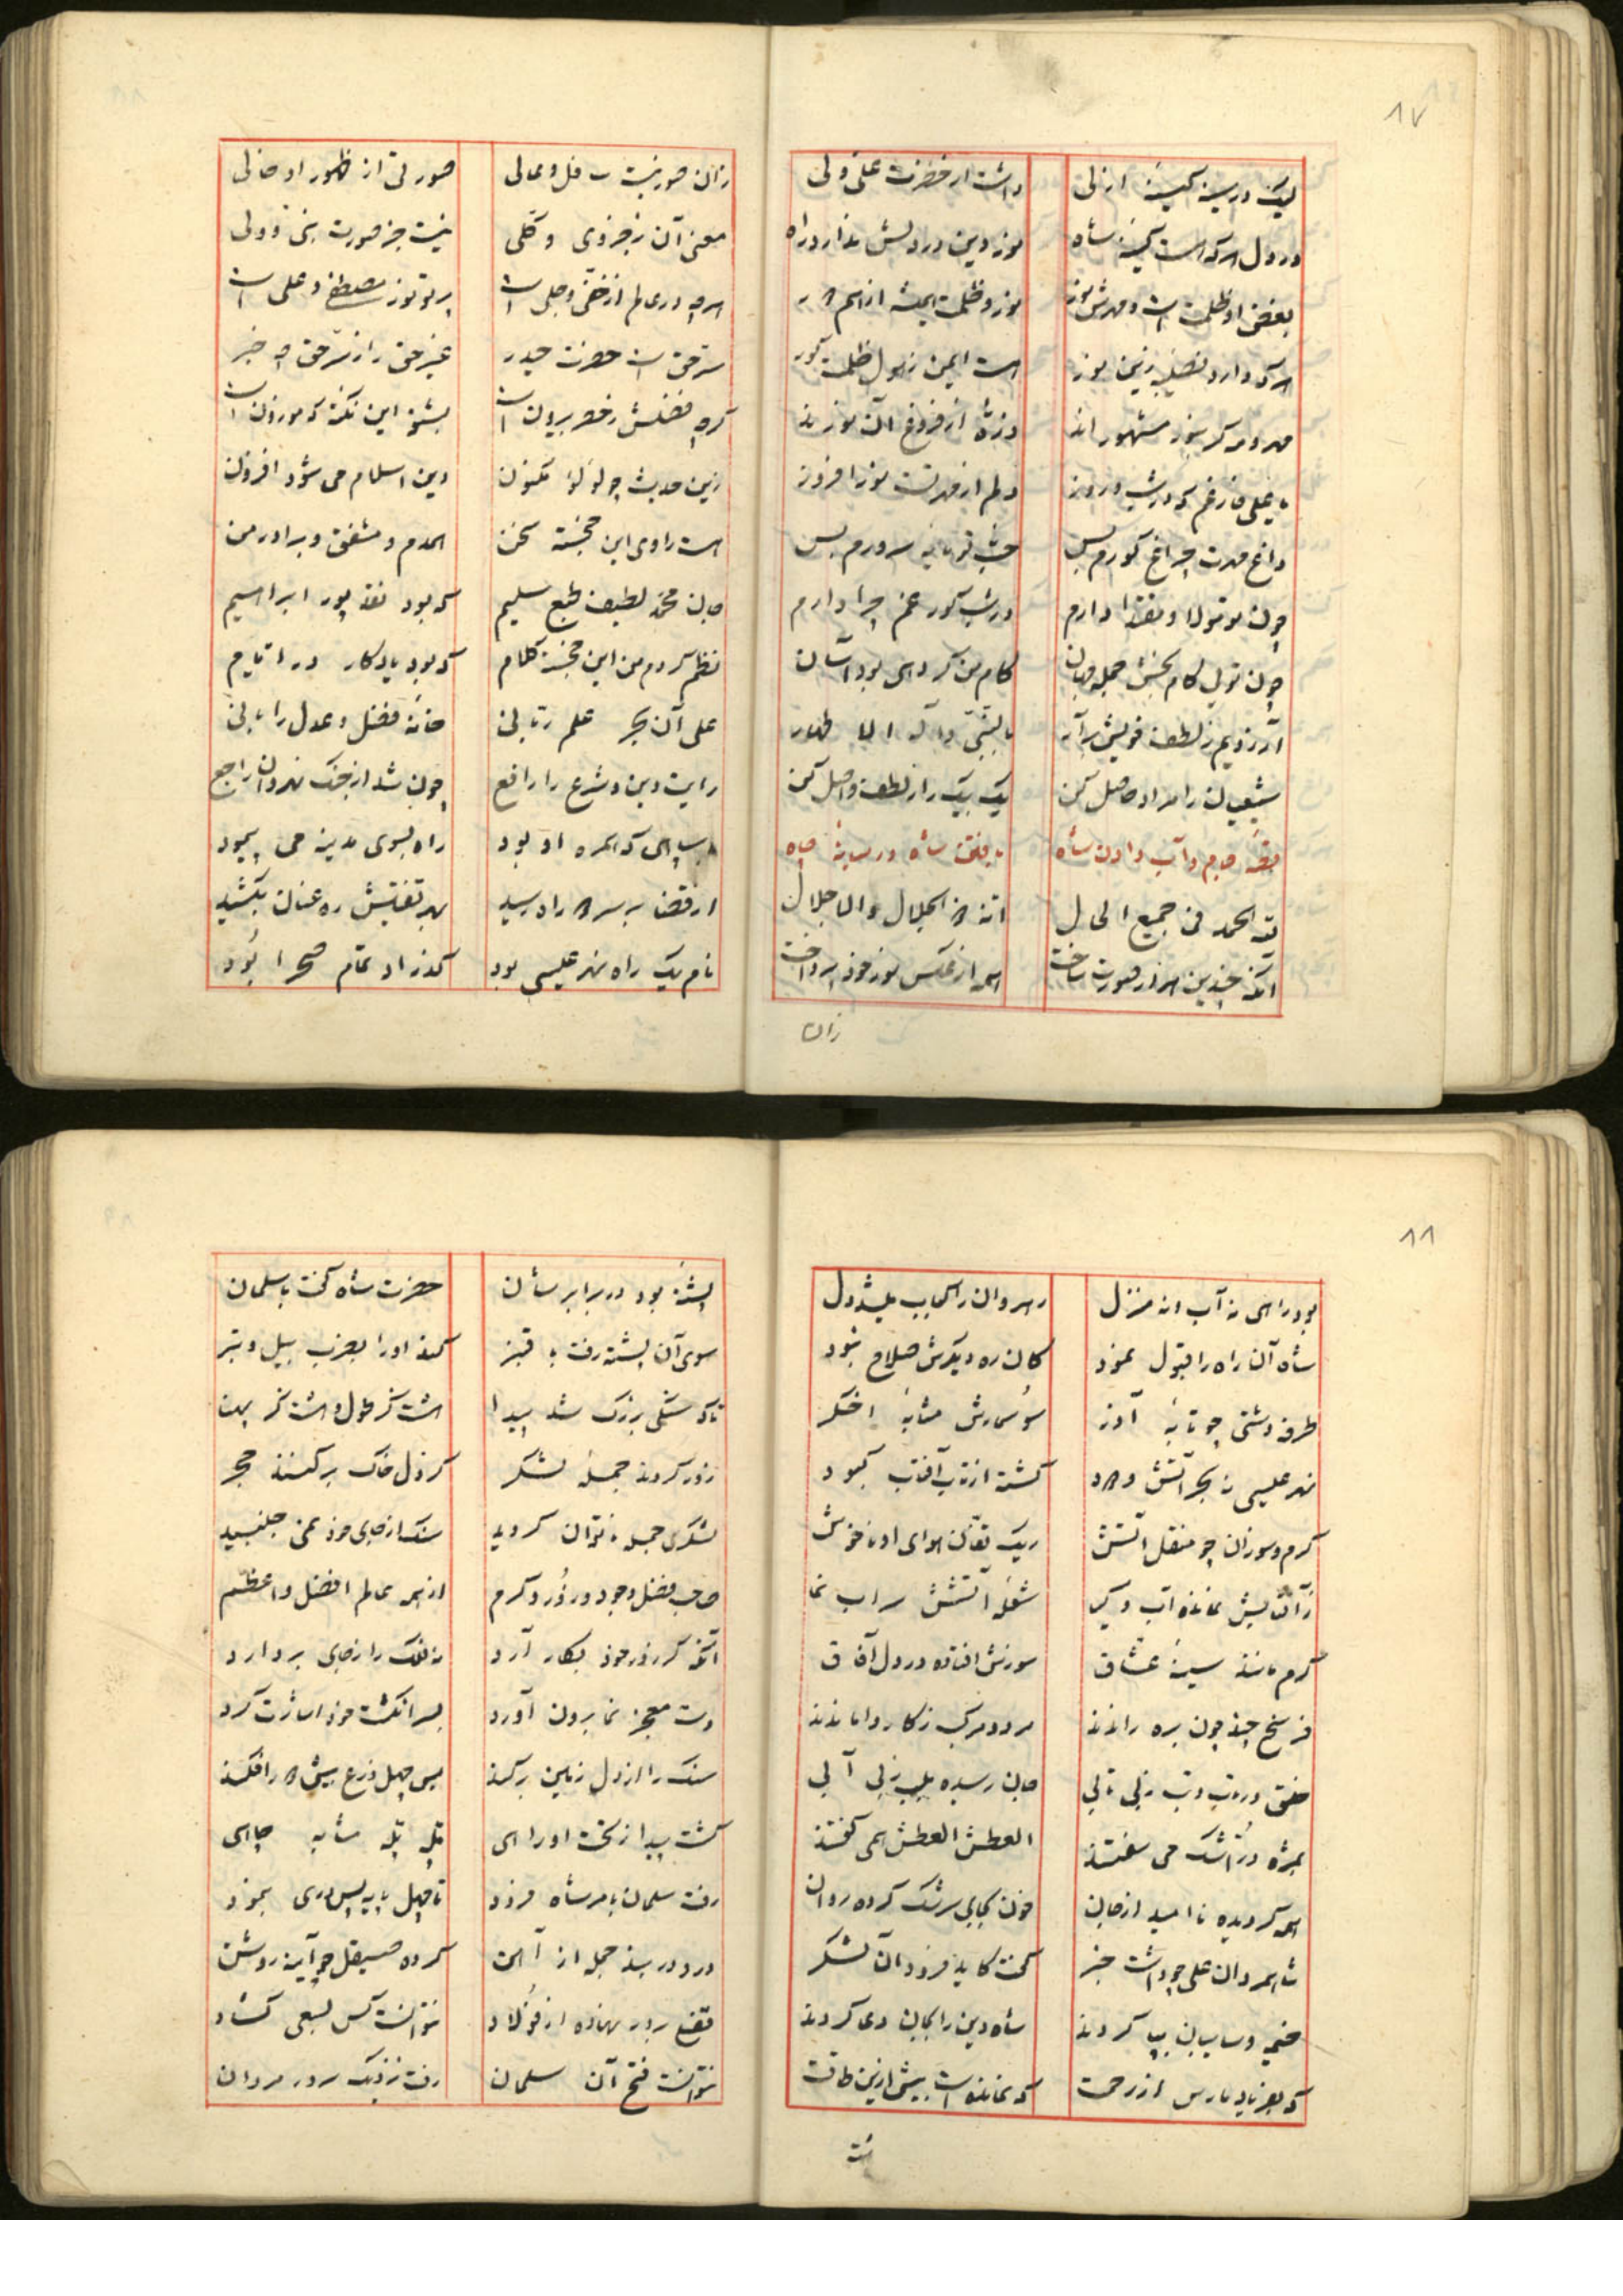 ۸۷
لیک در سینه کینه ازلی داشت از حضرت علی ولی
در دل هر که هست کینه شاه نور دین در دلش ندارد راه
بغض او ظلمت است و مهرش نور نور و ظلمت همیشه از هم دور
هر که دارد نصیبه زین نور هست ایمن ز هول ظلمت گور
مهر و مه کز بنور مشهوراند ذره از فروغ آن نورند
یا علی فارغم که در شب و روز دلم از مهر تست نور افروز
داغ مهرت چراغ گورم بس حب تو مایه سرورم بس
چون تو مولا و مقتدا دارم در شب گور غم چرا دارم
چون تویی کام بخش جمله جهان کام من گر دهی بود آسان
آرزویم ز لطف خویش برآر بالنبی و آله الاطهار
شیعیان را مراد حاصل کن یک بیک را ز لطف واصل کن
قصه جام و آب دادن شاه یافتن شاه در میانه چاه
لله الحمد فی جمیع الحال انه ذو الجلال والاجلال
آنکه چندین هزار صورت ساخت همه از عکس نور خود پرداخت
زان
زان صور نیست سافل و عالی صورتی از ظهور او خالی
معنی آن ز جزوی و کلی نیست جز صورت نبی و ولی
هر چه در عالم از خفی و جلی است پرتو نور مصطفی و علی است
سر حق است حضرت حیدر غیر حق را ز سر حق چه خبر
گرچه فضلش ز حصر بیرون است بشنو این نکته که موزون است
زین حدیث چو لؤلؤ مکنون دین اسلام می شود افزون
هست راوی این خجسته سخن همدم و مشفق و برادر من
جان محمد لطیف طبع سلیم که بود نقد پور ابراهیم
نظم کردم من این خجسته کلام که بود یادکار در ایام
علی آن بحر علم ربانی خانه فضل و عدل را بانی
رایت دین و شرع را رافع چون شد از جنک نهروان راجع
با سپاهی که همره او بود راه بسوی مدینه می پیمود
از قضا بر سر دو راه رسید بهر تفتیش ره عنان بکشید
نام یک راه نهر علیسی بود گذر او تمام صحرا بود
۸۸
بود راهی نه آب و نه منزل رهروان را عجایب مشکل
شاه آن راه را قبول نمود کان ره دیگرش صلاح نبود
طرفه دشتی چو تابه آذر سوسمارش مشابه اخگر
نهر علیسی نه بحر آتش و دود گشته از تاب آفتاب کبود
گرم و سوزان چو منقل آتش ریک تفتان هوای او ناخوش
ز آتشش نمانده آب و گیا شعله آتشش سراب نما
گرم مانند سینه عشاق سوزش افتاده در دل آفاق
فرسخ چند چون بره راندند مرد و مرکب ز کار واماندند
خلق در تاب و تب ز بی تابی جان رسیده بلب ز بی آبی
بمژه در اشک می سفتند العطش العطش همی گفتند
همه گردیده ناامید از جان خون بجای سرشک کرده روان
شاه مردان علی چو داشت خبر گفت کاید فرود آن لشکر
خیمه و سایبان بپا کردند شاه دین را بجان دعا کردند
که بفریاد ما رس از رحمت که نمانده است بیش ازین طاقت
پشته بود در برابر شان حضرت شاه گفت با سلمان
سوی آن پشته رفت با قنبر کند او را بضرب بیل و تبر
تا که سنگی بزرگ شد پیدا هشت گز طول و هشت گز پهنا
زور کردند جمله لشکر کز دل خاک برکنند حجر
لشکری جمله ناتوان گردید سنک از جای خود نمی جنبید
صاحب فضل و جود و زور و کرم از همه عالم افضل و اعظم
آنکه گر زور خود بکار آرد نه فلک را ز جای بردارد
دست معجز نما برون آورد بسر انگشت خود اشارت کرد
سنک را از دل زمین برکند پس چهل ذرع بیش دور افکند
گشت پیدا ز تحت او راهی پله پله مشابه چاهی
رفت سلمان بامر شاه فرود تا چهل پایه پس دری بنمود
در و دربند جمله از آهن کرده صیقل چو آینه روشن
قفل بر در نهاده از فولاد نتوانست کس بسعی گشاد
نتوانست فتح آن سلمان رفت نزدیک سرور مردان